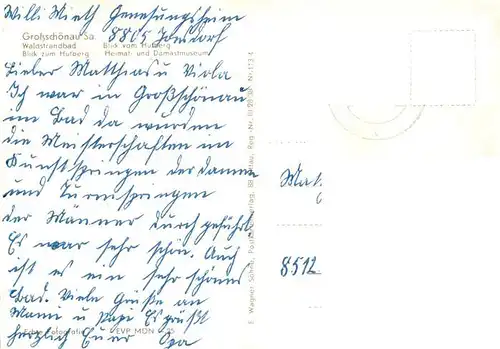 Willi Wieth Genesungsheim
8805 Jonsdorf
Großschönau Sa.
Waldstrandbad Blick vom Hutberg
Blick zum Hutberg Heimat- und Damastmuseum
Lieber Matthias u Viola
Ich war in Großschönau
im Bad da wurden
die Meisterschaften im
Kunstspringen der Damen
und Turmspringen
der Männer durch geführt
Es war sehr schön. Auch
ist es ein sehr schönes
Bad. Viele Grüße an
Mami u Papi Es grüßt
herzlich Euer Opa
Echte Fotografie EVP MDN
8512